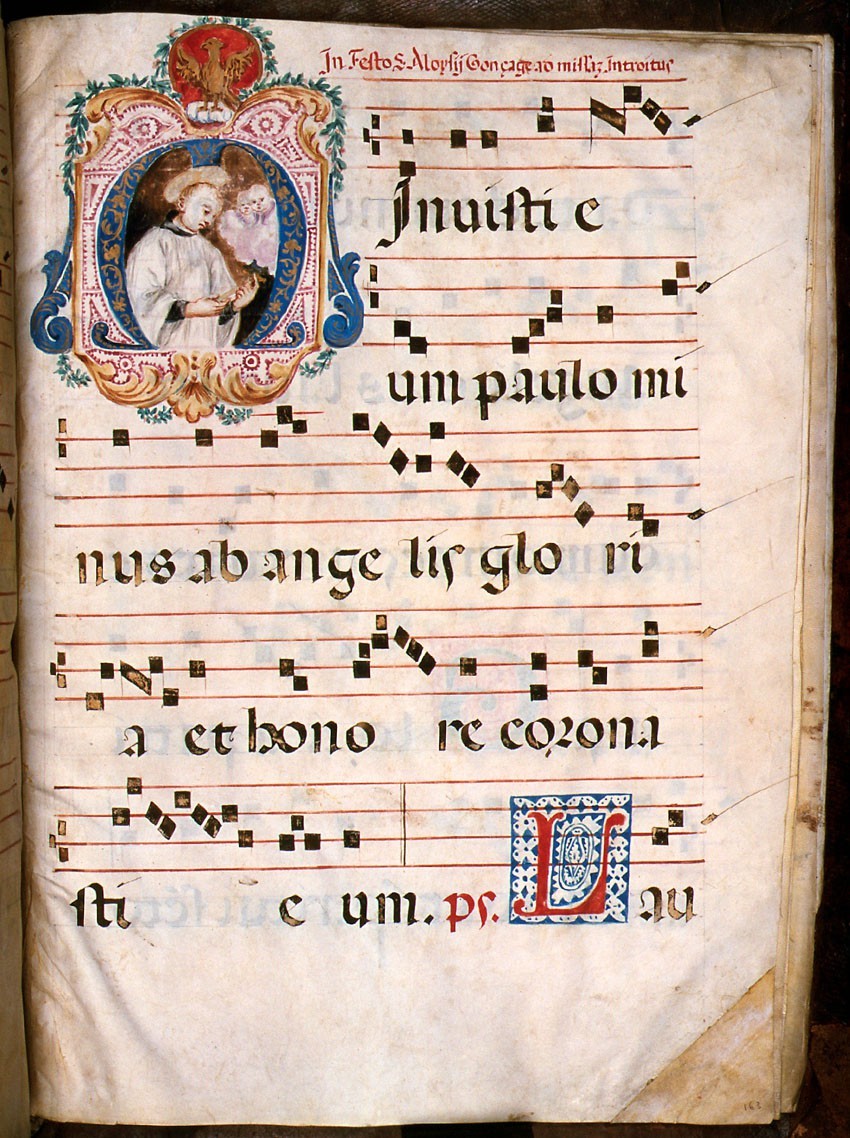 In Festo S. Aloysij Gonçage ad missaz Introitus
MInuisti e
um paulo mi
nus ab ange lis glo ri
a et hono re corona
sti e um. ps. L au
163